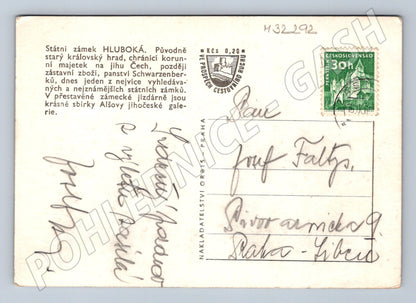 H32292
Státní zámek HLUBOKÁ. Původně
starý královský hrad, chránící korun-
ní majetek na jihu Čech, později
zástavní zboží, panství Schwarzenber-
ků, dnes jeden z nejvíce vyhledáva-
ných a nejznámějších státních zámků.
V přestavěné zámecké jízdárně jsou
krásné sbírky Alšovy jihočeské gale-
rie.
Kčs 0,20
VE PROSPĚCH CESTOVNÍHO RUCHU
ČESKOSLOVENSKO
30h
NAKLADATELSTVÍ ORBIS - PRAHA
Srdečný pozdrav
z výletu zasílá
Josef
Pan
Josef Faltys
Pivovarnická 9
Praha-Libeň
POHLEDNICE - GASH